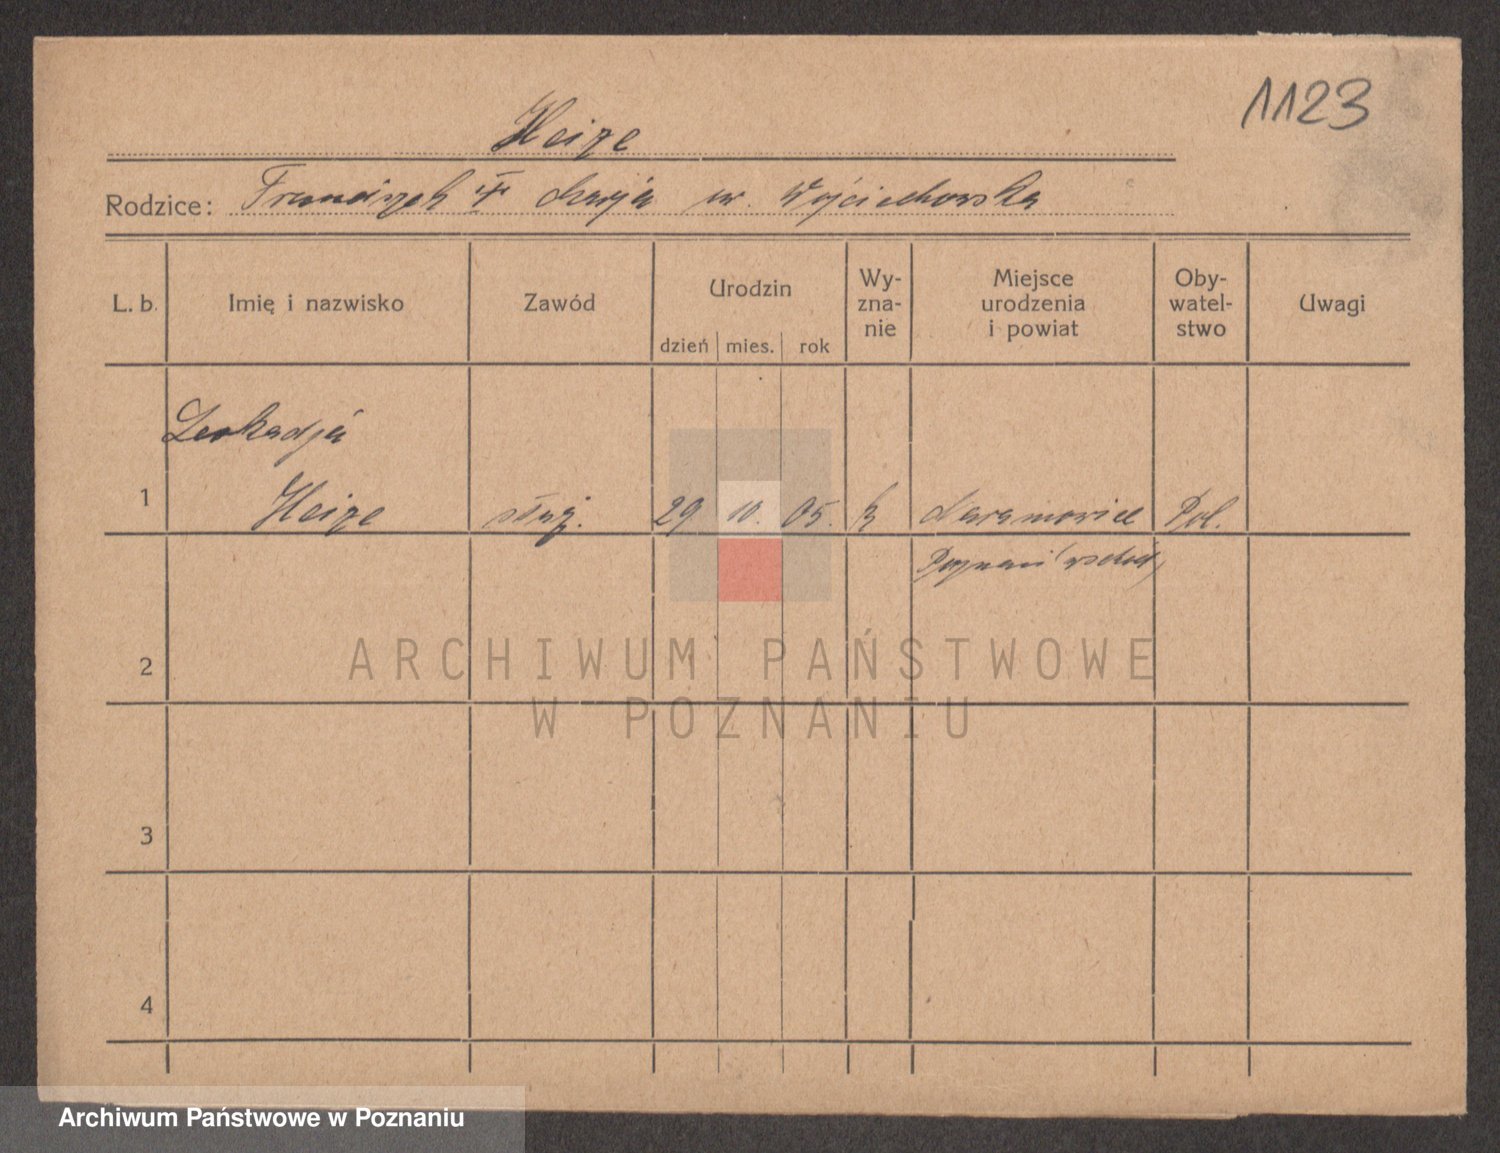 1123
Heize
Rodzice: Franciszek i Marja ur. Wojciechowska
L. b. Imię i nazwisko Zawód Urodzin dzień mies. rok Wy-zna-nie Miejsce urodzenia i powiat Oby-watel-stwo Uwagi
Leokadja
1 Heize służ. 29 10. 05. k Naramowice Pol.
Poznań wschód
2
ARCHIWUM PAŃSTWOWE
W POZNANIU
3
4
Archiwum Państwowe w Poznaniu